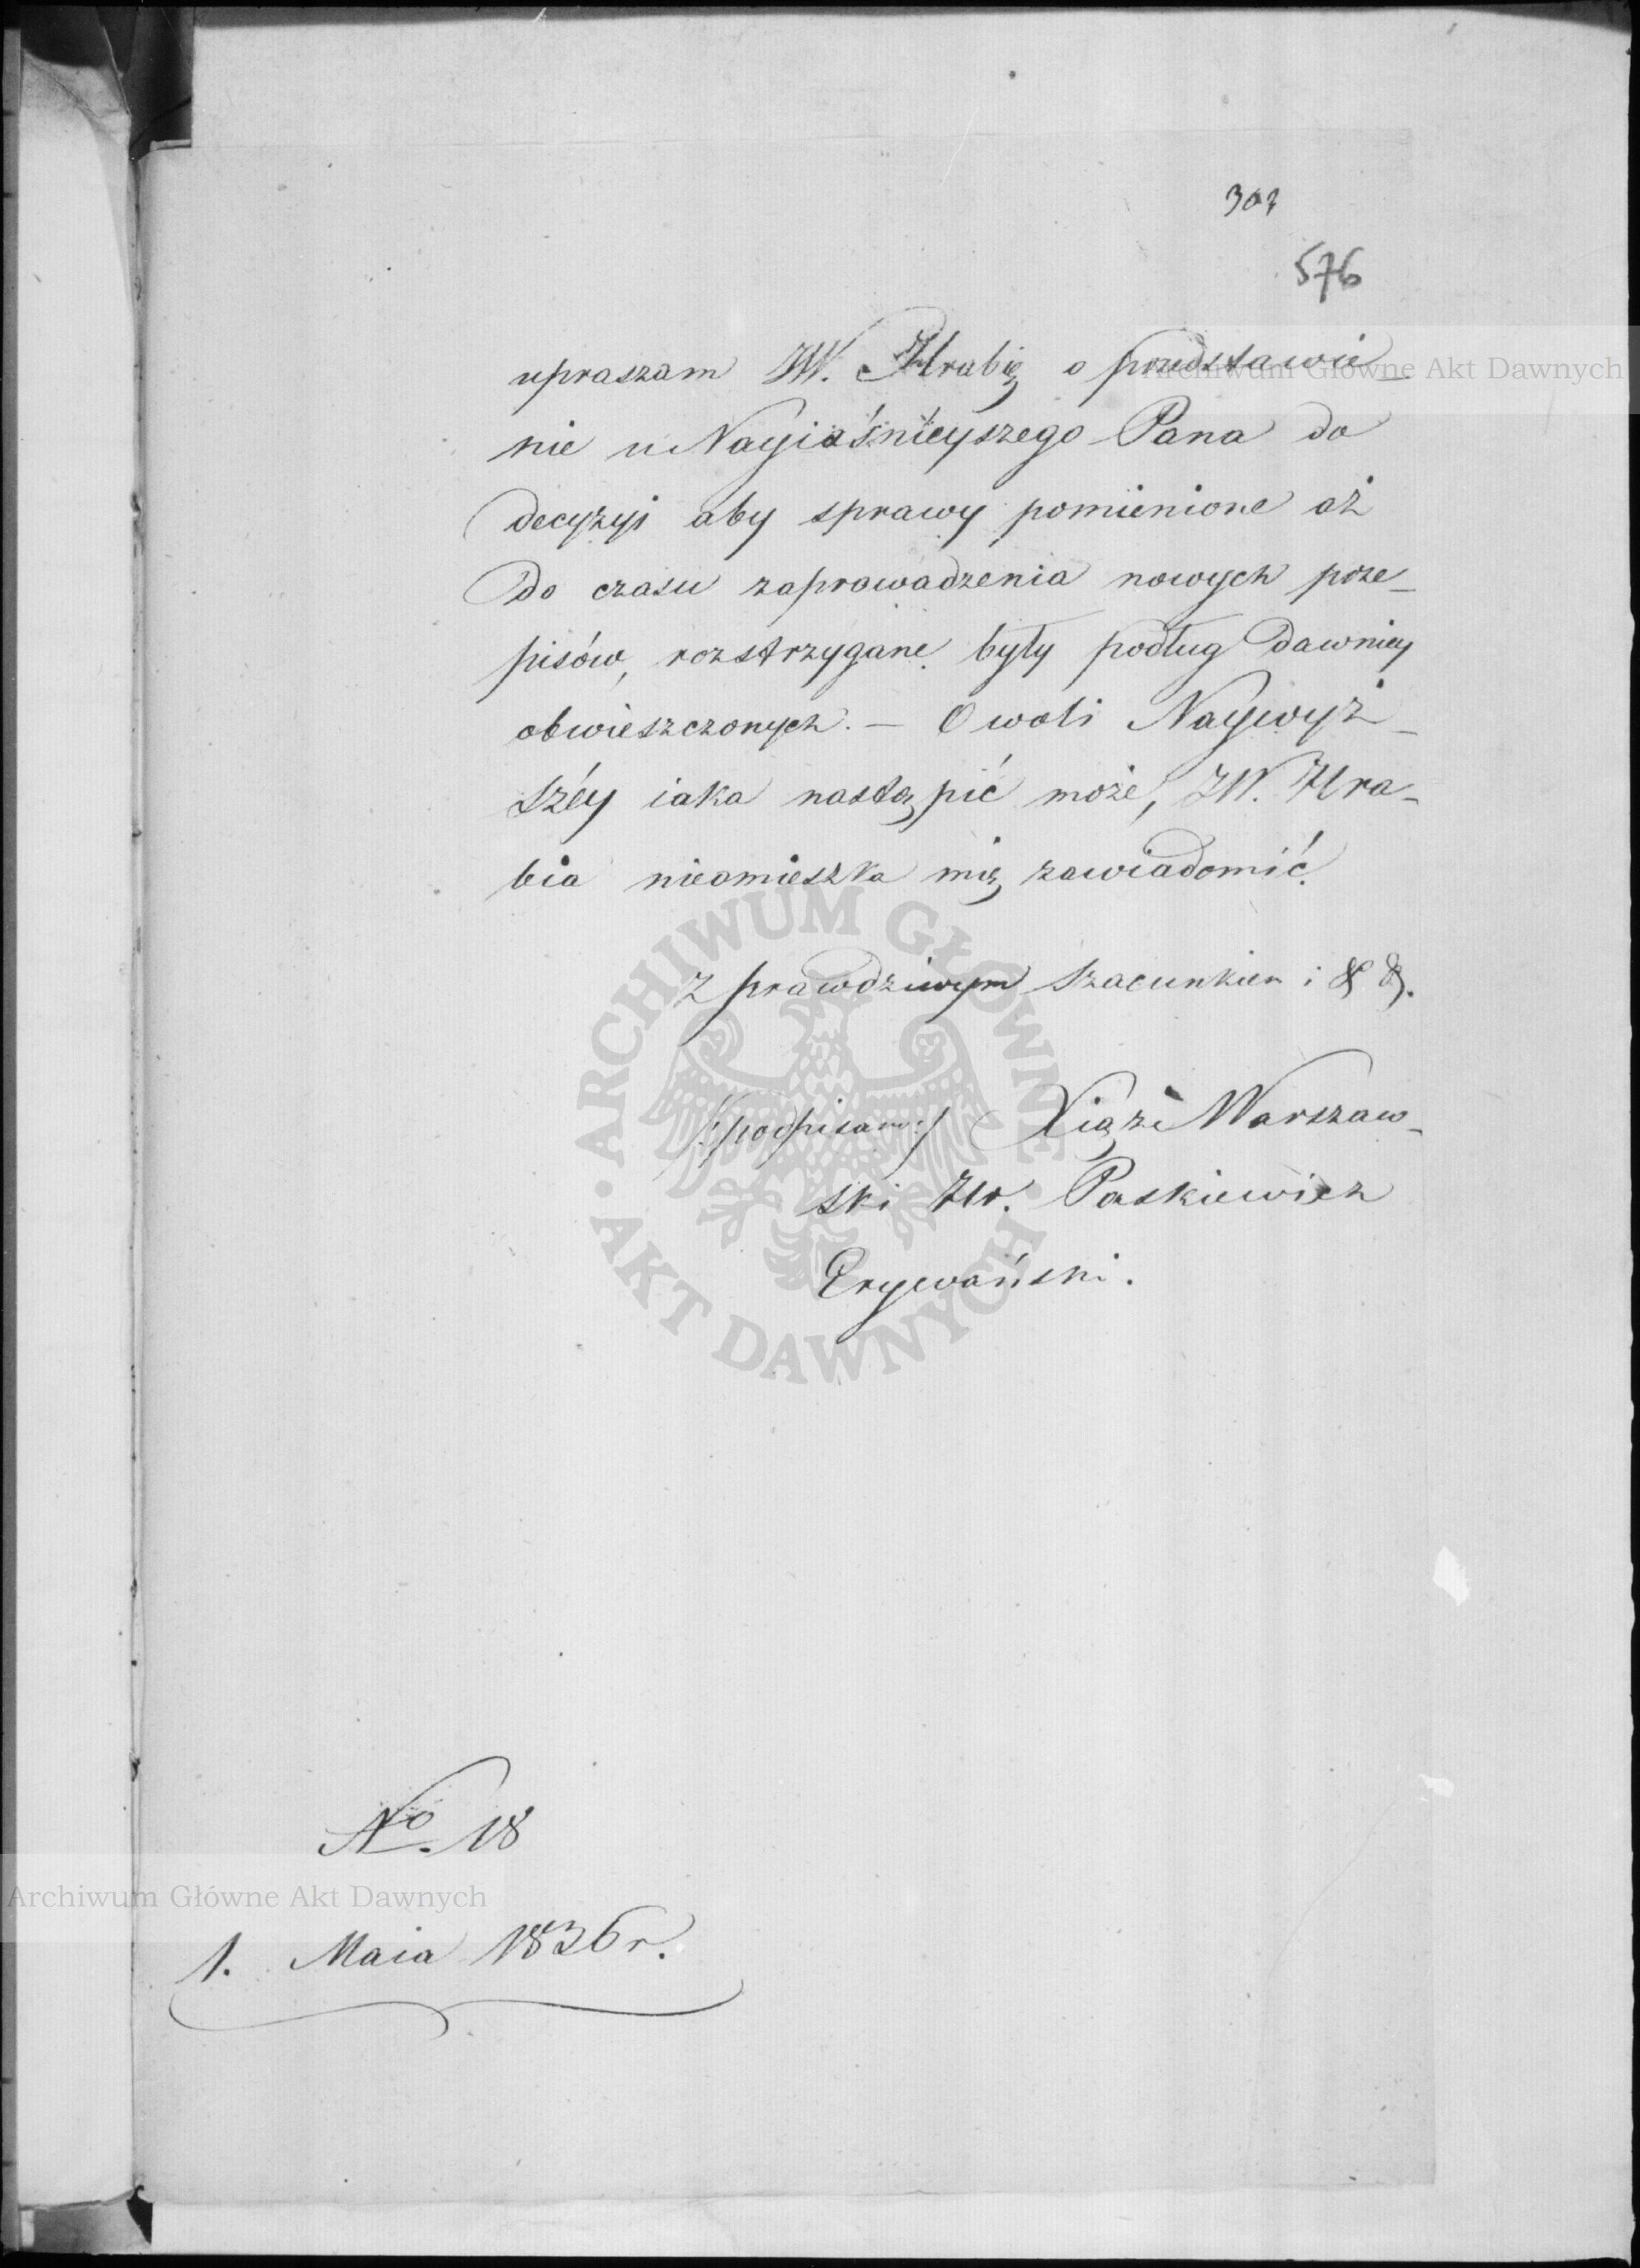 303
576
upraszam JW. Hrabię o przedstawie-
nie u Nayiaśnieyszego Pana do
decyzyi aby sprawy pomienione aż
do czasu zaprowadzenia nowych prze-
pisów, rozstrzygane były podług dawniey
obwieszczonych. — O woli Naywyż-
széy iaka nastąpić może, JW. Hra-
bia nieomieszka mię zawiadomić.
z prawdziwym szacunkiem i & &.
/:podpisano:/ Xiąże Warszaw-
ski Hr. Paskiewicz
Erywański.
No. 18
1. Maia 1836 r.
Archiwum Główne Akt Dawnych
Archiwum Główne Akt Dawnych
ARCHIWUM GŁÓWNE AKT DAWNYCH